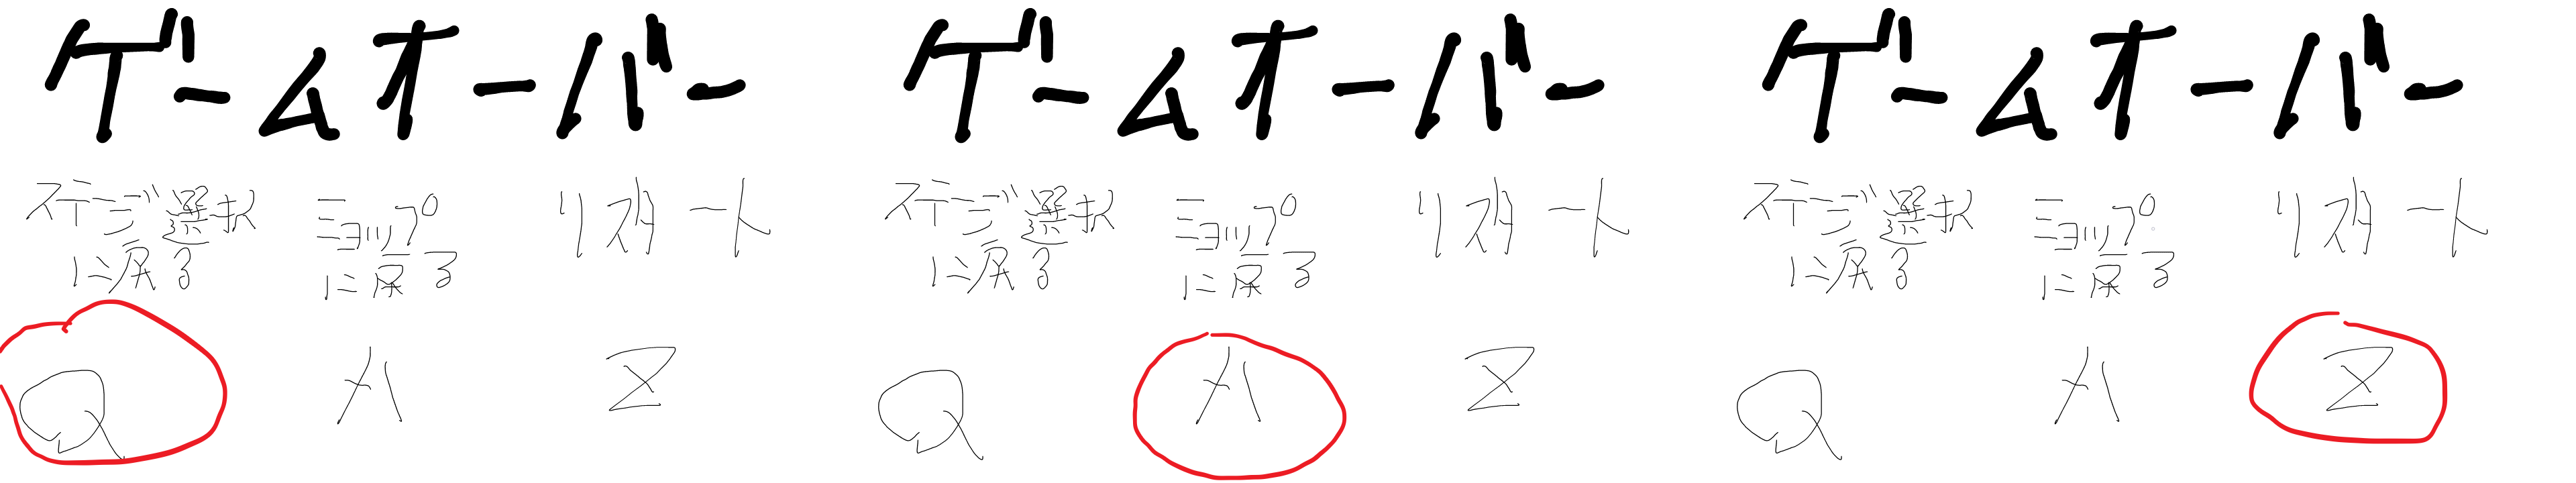 ゲームオーバー
ステージ選択に戻る
ショップに戻る
リスタート
Q
A
Z
ゲームオーバー
ステージ選択に戻る
ショップに戻る
リスタート
Q
A
Z
ゲームオーバー
ステージ選択に戻る
ショップに戻る
リスタート
Q
A
Z